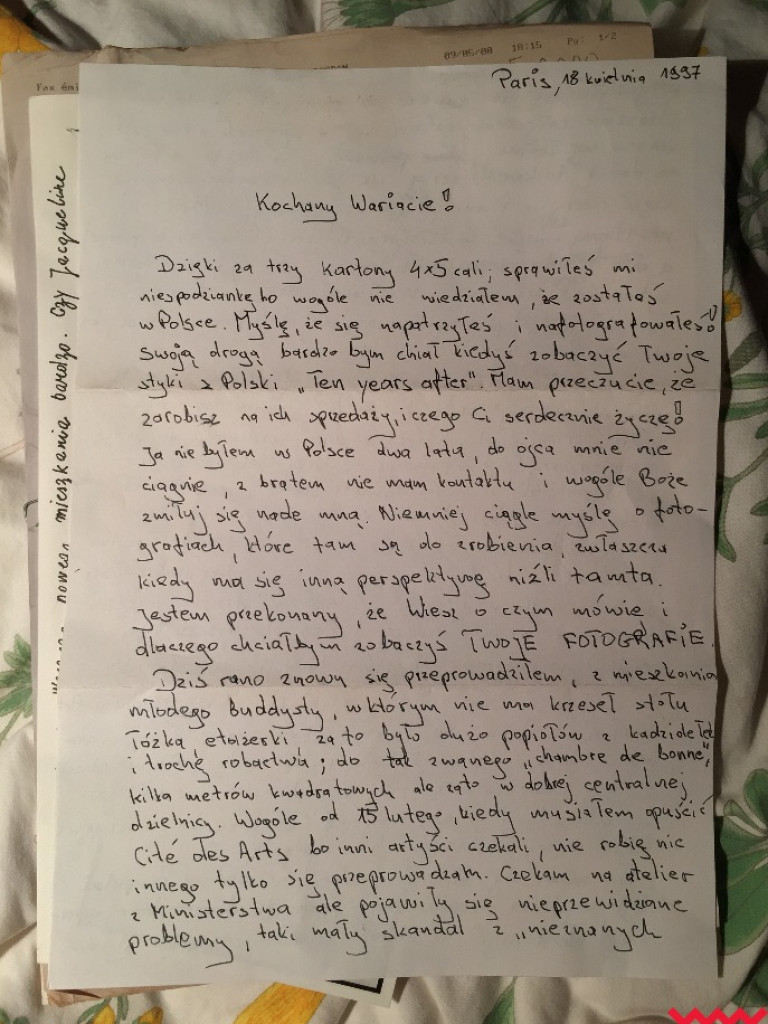 09/05/00 18:15 Pg: 1/2
Paris, 18 kwietnia 1997
Kochany Wariacie!
Dzięki za trzy kartony 4x5 cali; sprawiłeś mi
niespodziankę bo wogóle nie wiedziałem, że zostałeś
w Polsce. Myślę, że się napatrzyłeś i nafotografowałeś!
Swoją drogą bardzo bym chiał kiedyś zobaczyć Twoje
styki z Polski „Ten years after". Mam przeczucie, że
zarobisz na ich sprzedaży, i czego Ci serdecznie życzę!
Ja nie byłem w Polsce dwa lata, do ojca mnie nie
ciągnie, z bratem nie mam kontaktu i wogóle Boże
zmiłuj się nade mną. Niemniej ciągle myślę o foto-
grafiach, które tam są do zrobienia, zwłaszcza
kiedy ma się inną perspektywę niźli tamta.
Jestem przekonany, że Wiesz o czym mówię i
dlaczego chciałbym zobaczyś TWOJE FOTOGRAFIE.
Dziś rano znowu się przeprowadziłem, z mieszkania
młodego buddysty, w którym nie ma krzeseł stołu
łóżka, etażerki za to było dużo popiołów z kadzidełek
i trochę robactwa; do tak zwanego „chambre de bonne",
kilka metrów kwadratowych ale zato w dobrej centralnej
dzielnicy. Wogóle od 15 lutego, kiedy musiałem opuścić
Cité des Arts bo inni artyści czekali, nie robię nic
innego tylko się przeprowadzam. Czekam na atelier
z Ministerstwa ale pojawiły się nieprzewidziane
problemy, taki mały skandal z „nieznanych
nowego mieszkania bardzo. Czy Jacqueline